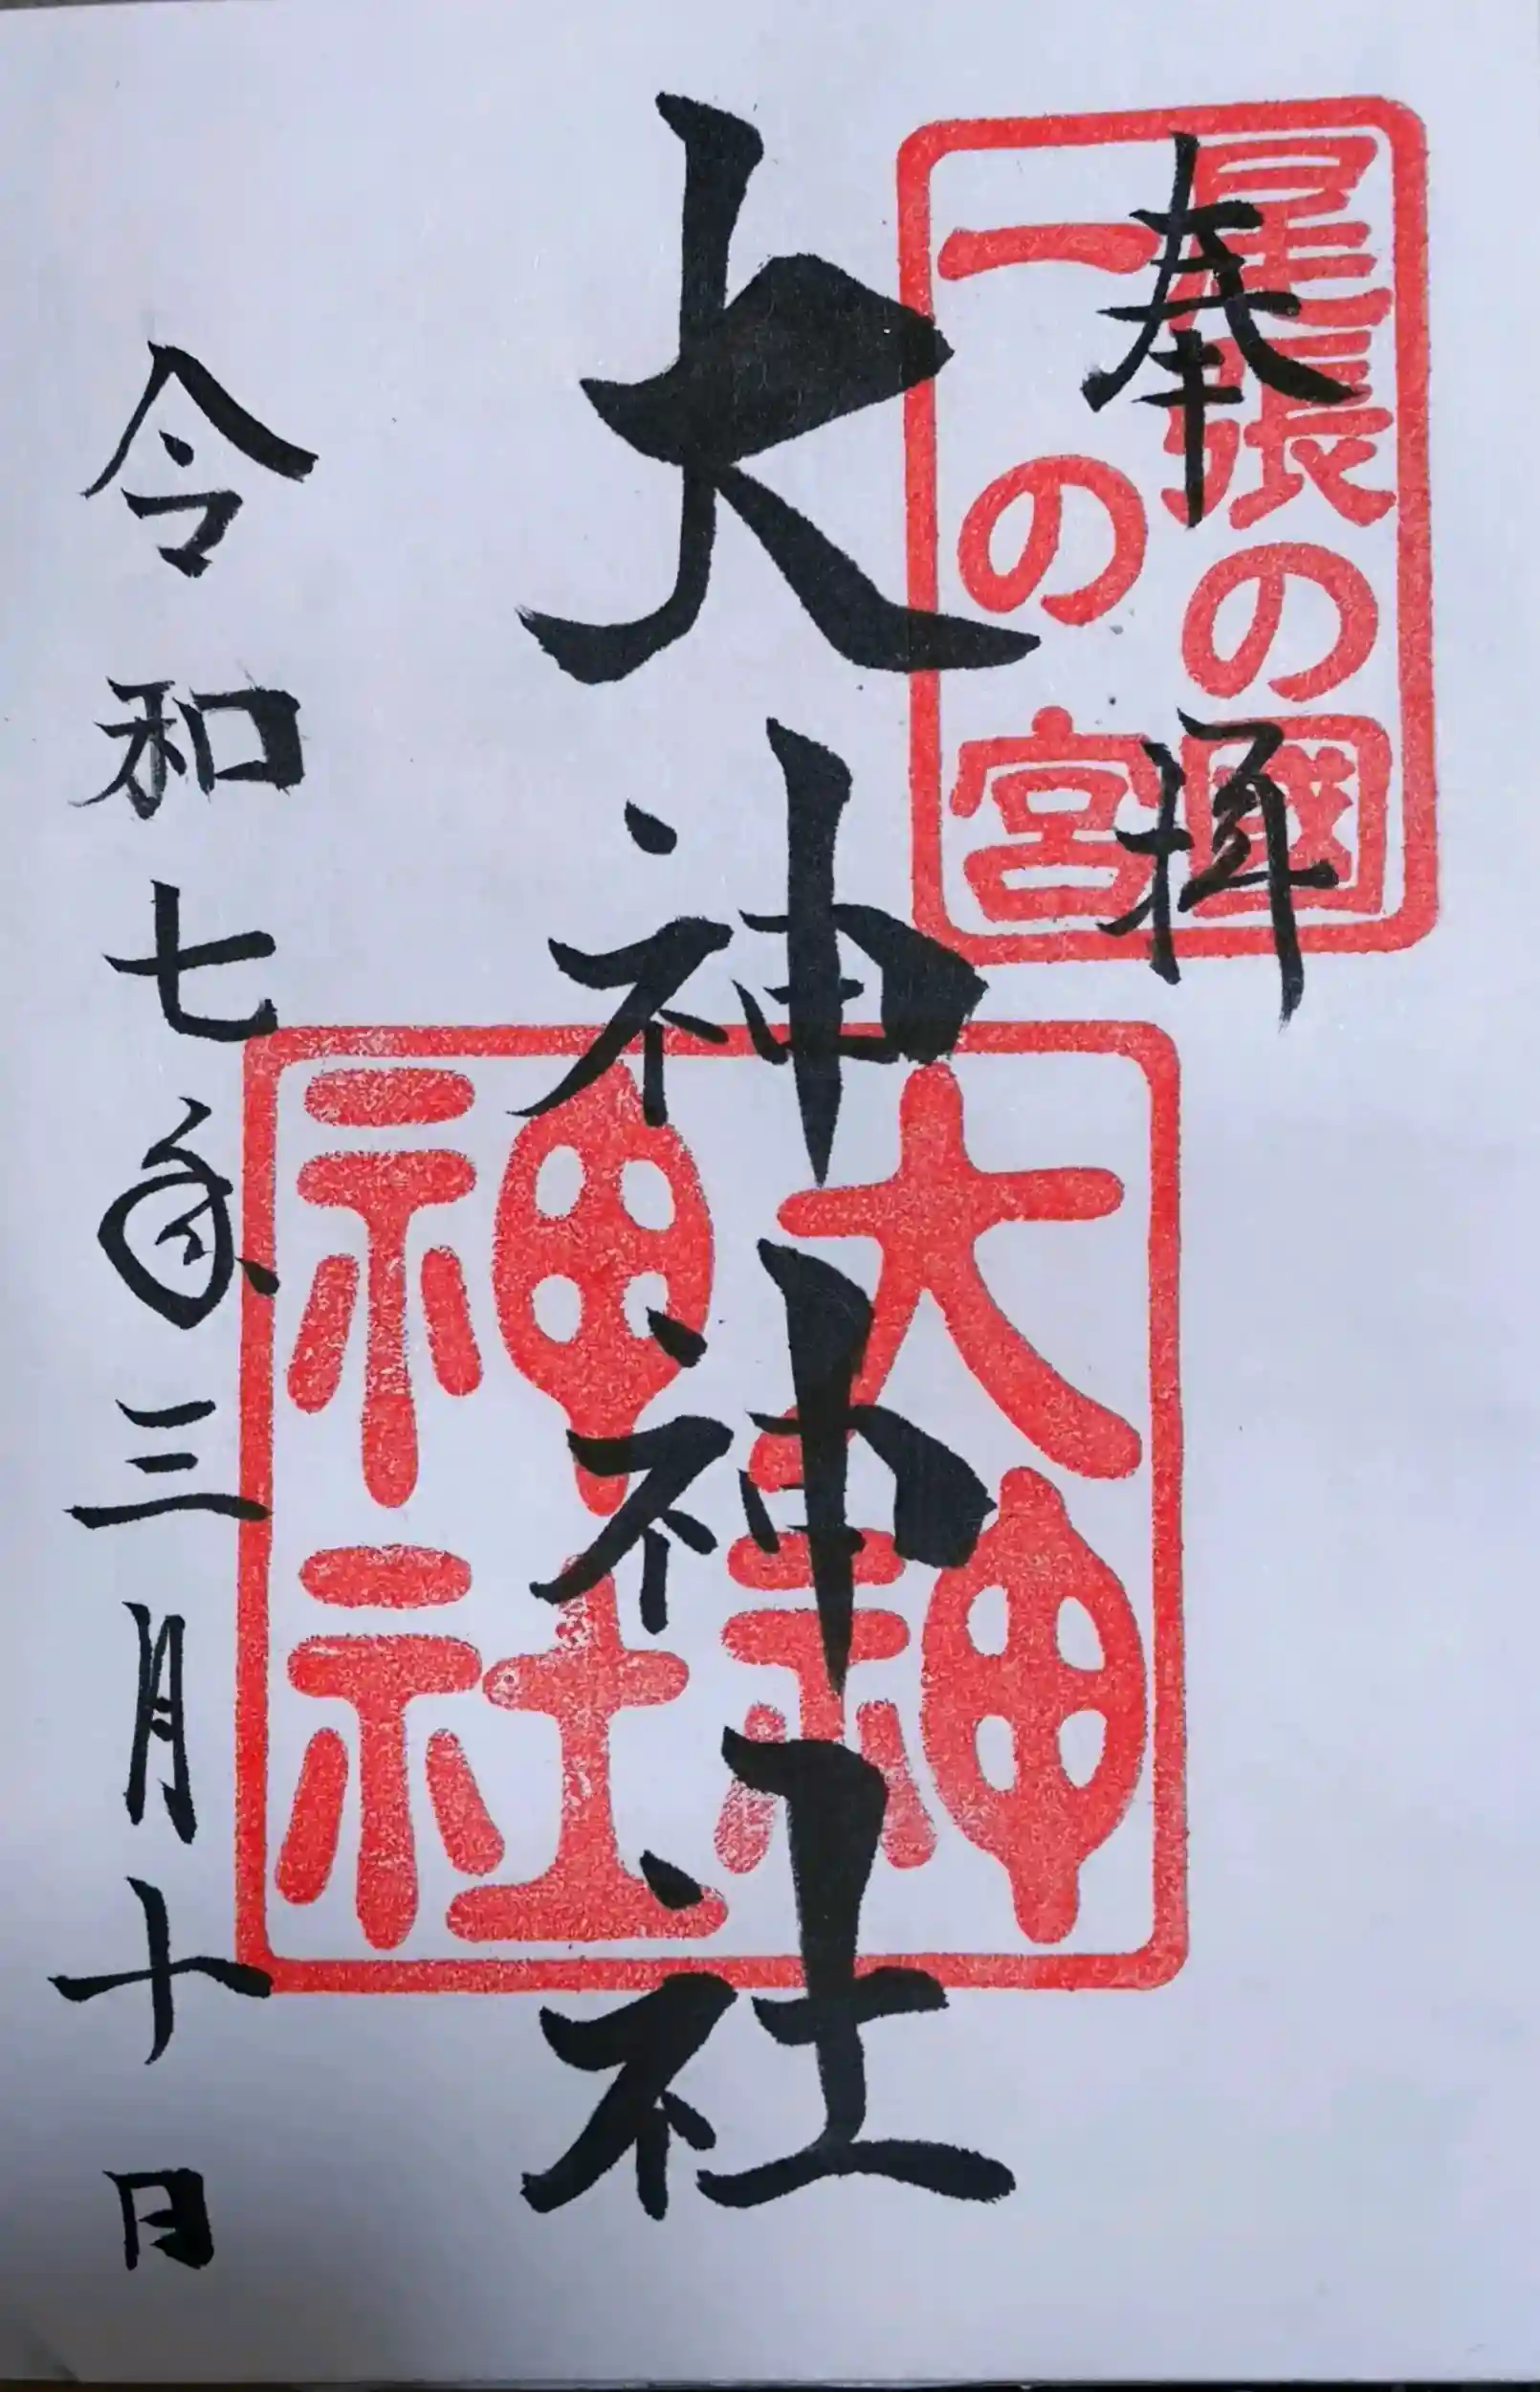 奉拝
尾張の國
一の宮
大神神社
大神
神社
令和七年三月十日